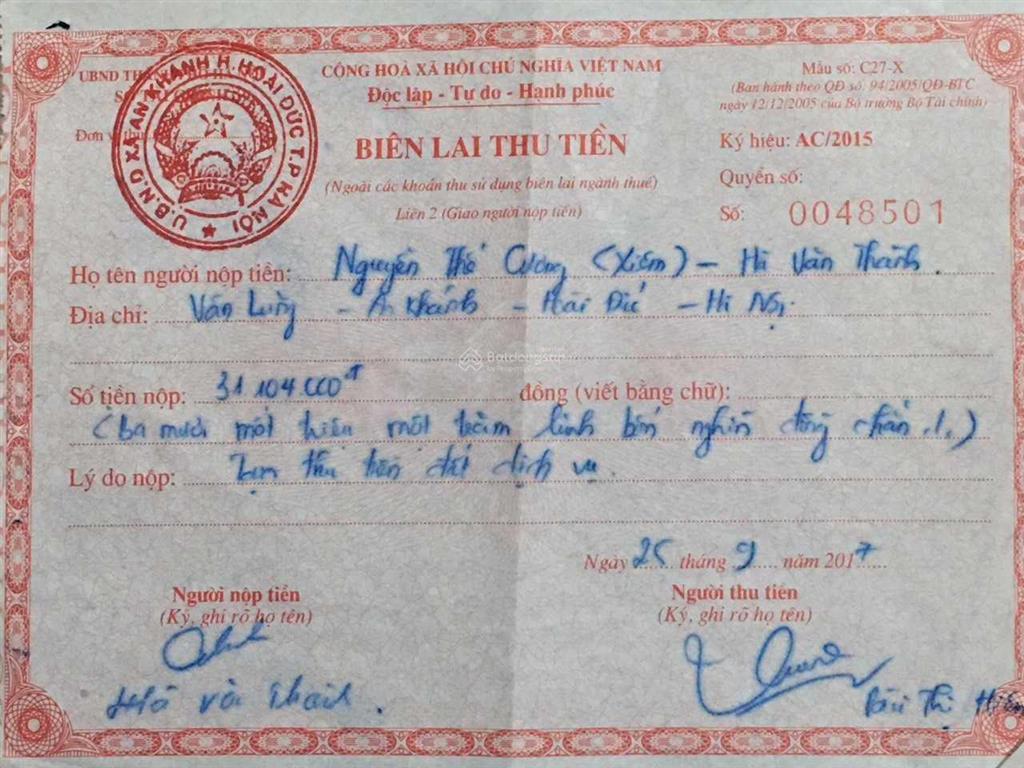 UBND
CỘNG HOÀ XÃ HỘI CHỦ NGHĨA VIỆT NAM
Độc lập - Tự do - Hạnh phúc
Mẫu số: C27-X
(Ban hành theo QĐ số: 94/2005/QĐ-BTC
ngày 12/12/2005 của Bộ trưởng Bộ Tài chính)
U.B.N.D XÃ AN KHÁNH H. HOÀI ĐỨC T.P HÀ NỘI
Đơn vị thu
BIÊN LAI THU TIỀN
Ký hiệu: AC/2015
(Ngoài các khoản thu sử dụng biên lai ngành thuế)
Quyển số:
Liên 2 (Giao người nộp tiền)
Số: 0048501
Họ tên người nộp tiền: Nguyễn Thế Cương (Xiêm) - Hà Văn Thành
Địa chỉ: Vân Lũng - An Khánh - Hoài Đức - Hà Nội
Batdongsan
Số tiền nộp: 31.104.000đ đồng (viết bằng chữ):
(ba mươi mốt triệu một trăm linh bốn nghìn đồng chẵn ./.)
Lý do nộp: Tạm thu tiền đất dịch vụ.
Ngày 25 tháng 9 năm 2017
Người nộp tiền
Người thu tiền
(Ký, ghi rõ họ tên)
(Ký, ghi rõ họ tên)
Hà văn Thành.
Thị Hiên